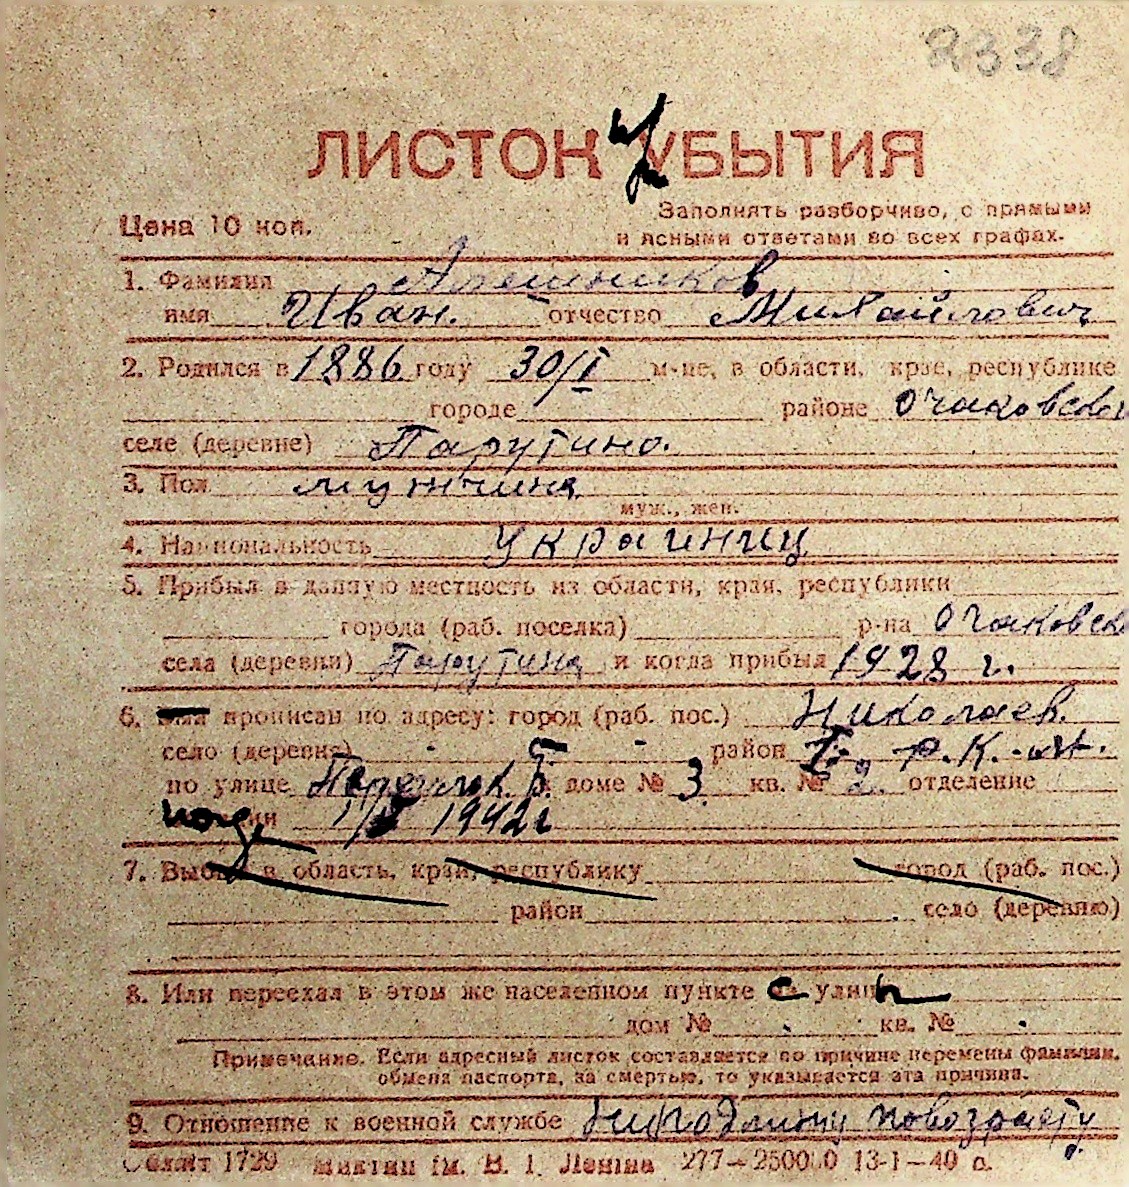 2338
ЛИСТОК УБЫТИЯ
Цена 10 коп.
Заполнять разборчиво, с прямыми
и ясными ответами во всех графах.
1. Фамилия Алешников
имя Иван. отчество Михайлович
2. Родился в 1886 году 30/I м-це, в области, крае, республике
городе районе Очаковском
селе (деревне) Парутино.
3. Пол мужчина
муж., жен.
4. Национальность украинец
5. Прибыл в данную местность из области, края, республики
города (раб. поселка) р-на Очаковск
села (деревни) Парутина и когда прибыл 1928 г.
6. прописан по адресу: город (раб. пос.) Николаев.
село (деревня) район I
по улице доме № 3 кв. № 2. отделение
1942 г
7. Выбыл в область, край, республику город (раб. пос.)
район село (деревню)
8. Или переехал в этом же населенном пункте с улицы
дом № кв. №
Примечание. Если адресный листок составляется по причине перемены фамилии,
обмена паспорта, за смертью, то указывается эта причина.
9. Отношение к военной службе повозрасту
1729 им. В. І. Леніна 277—2500 0 13-1—40 р.